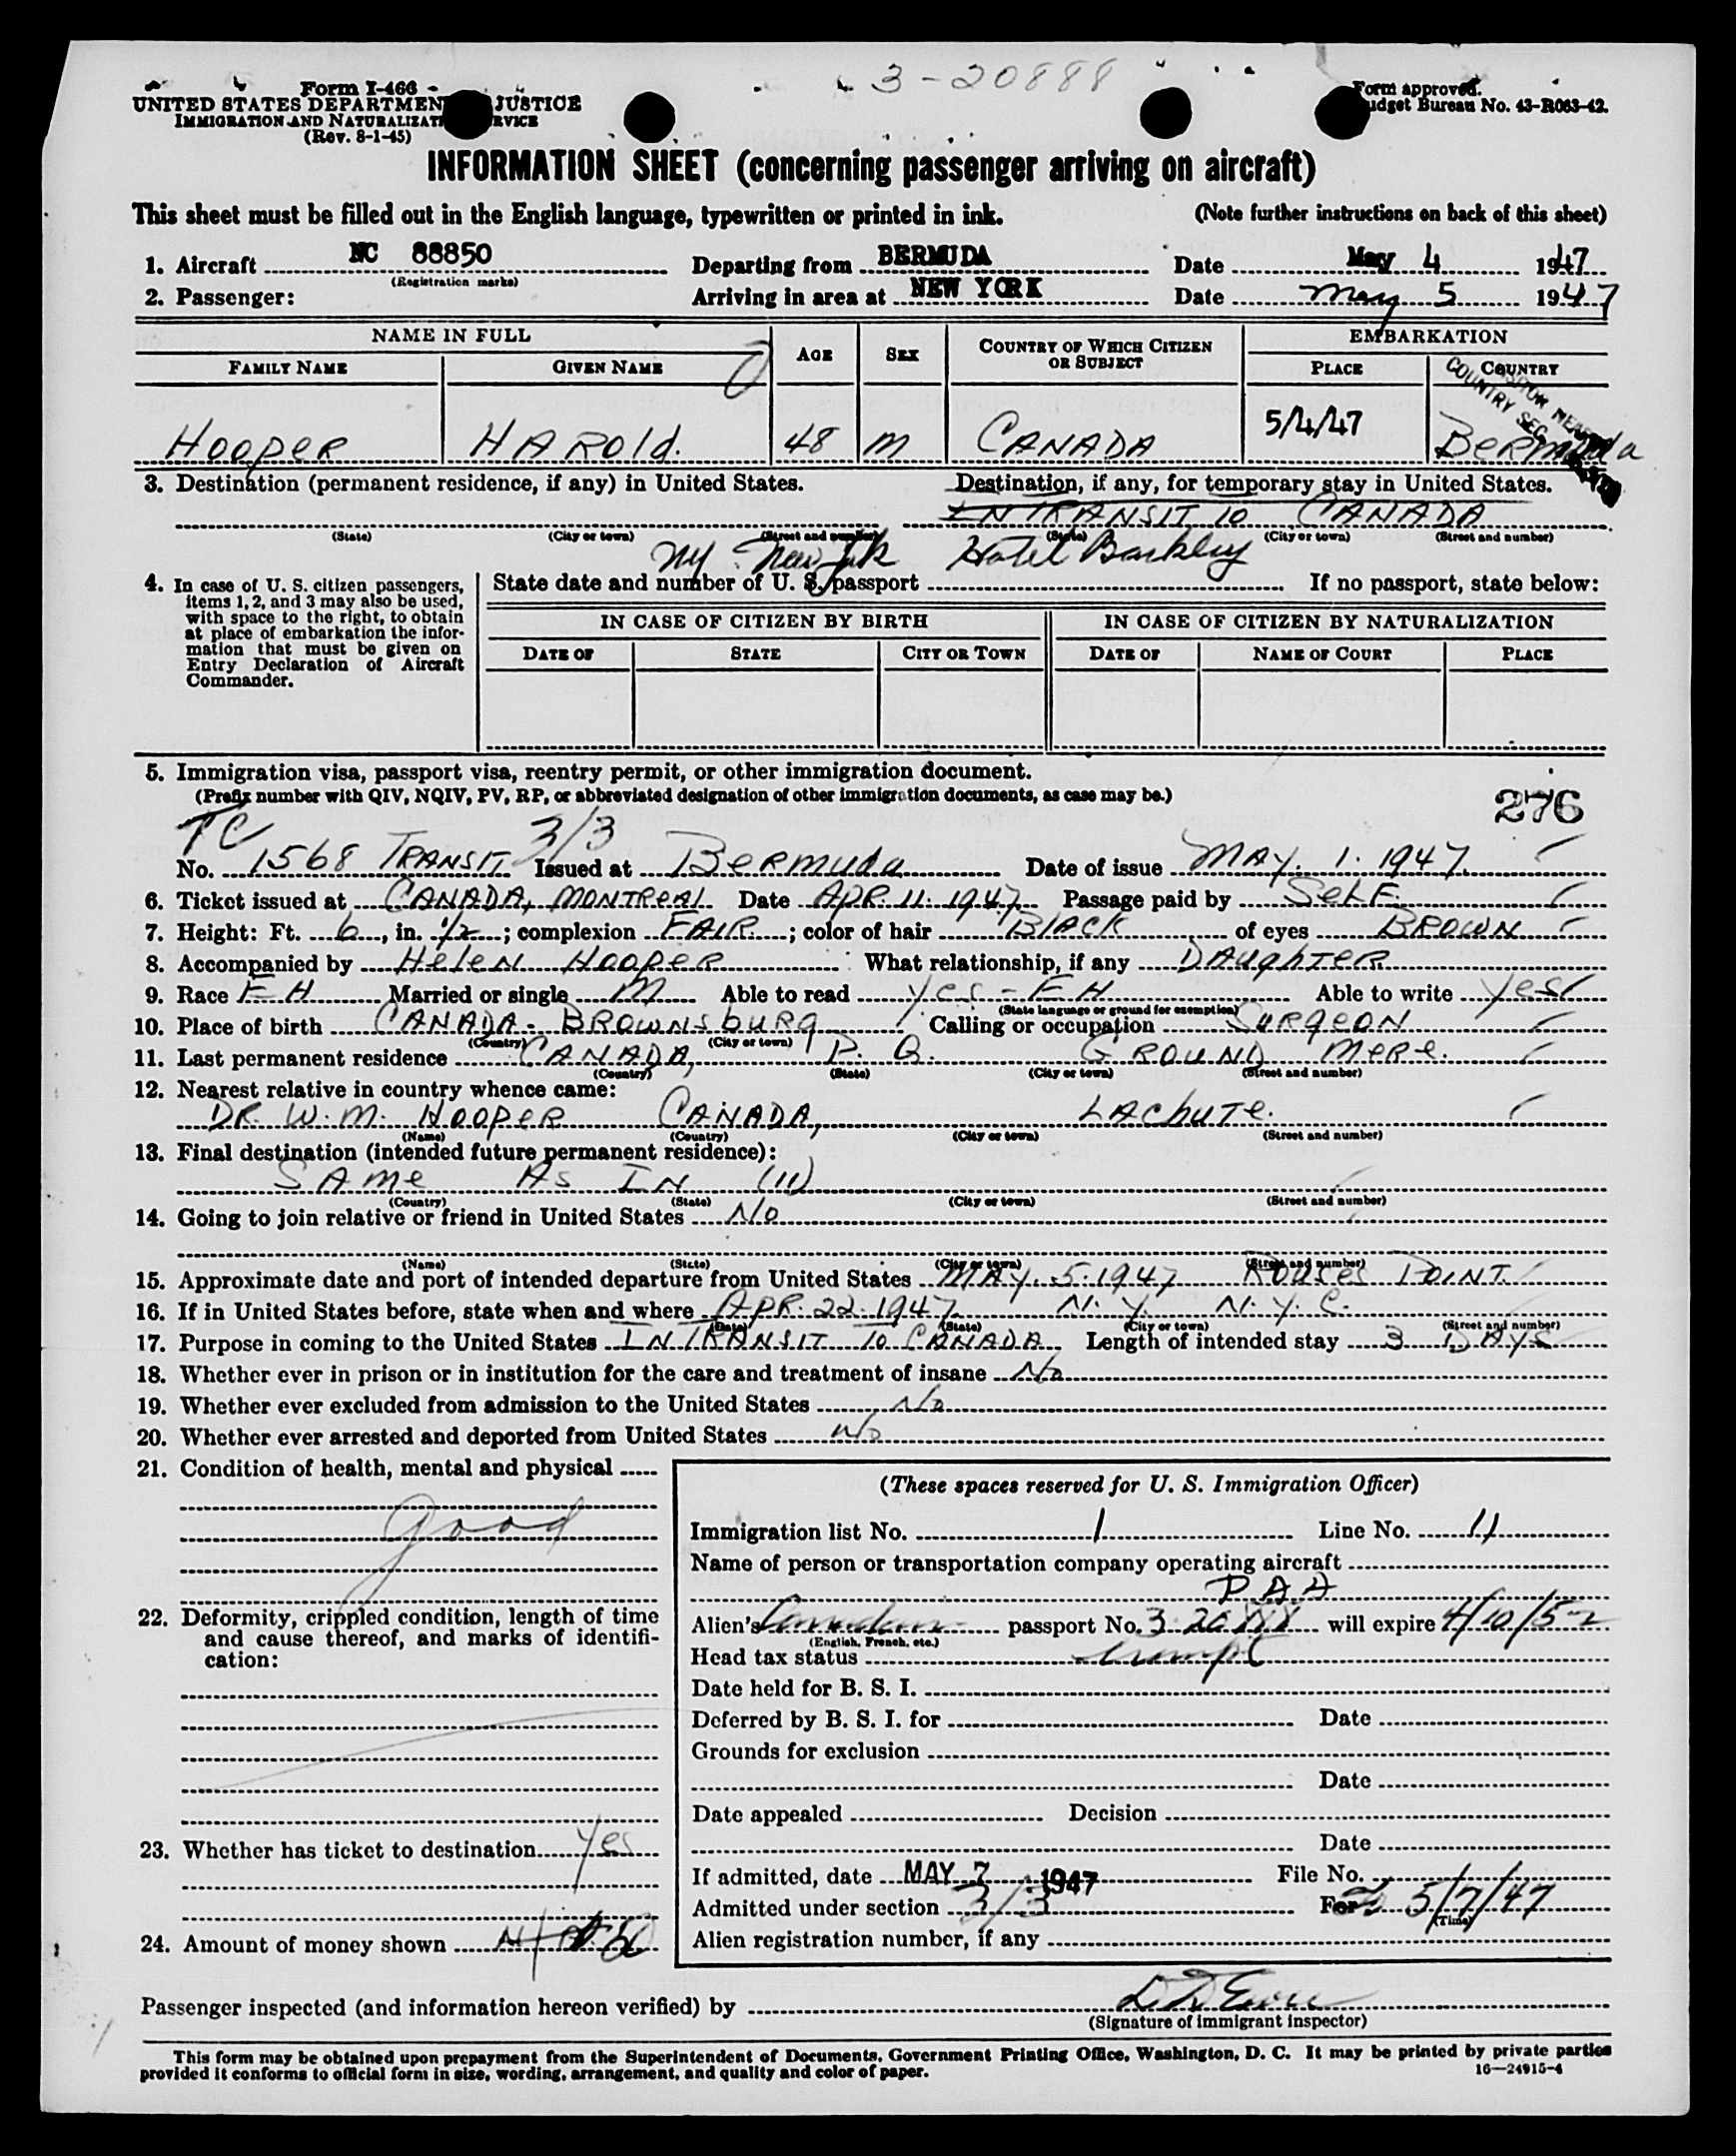 3-20888
Form I-466
UNITED STATES DEPARTMENT JUSTICE
IMMIGRATION AND NATURALIZATION SERVICE
(Rev. 8-1-45)
Form approved.
Budget Bureau No. 43-R063-42.
INFORMATION SHEET (concerning passenger arriving on aircraft)
This sheet must be filled out in the English language, typewritten or printed in ink. (Note further instructions on back of this sheet)
1. Aircraft NC 88850 Departing from BERMUDA Date May 4 1947
(Registration marks)
2. Passenger: Arriving in area at NEW YORK Date May 5 1947
NAME IN FULL AGE SEX COUNTRY OF WHICH CITIZEN OR SUBJECT EMBARKATION
FAMILY NAME GIVEN NAME PLACE COUNTRY
HOOPER HAROLD. 48 M CANADA 5/4/47 BERMUDA
3. Destination (permanent residence, if any) in United States. Destination, if any, for temporary stay in United States.
IN TRANSIT TO CANADA
(State) (City or town) (Street and number) (State) (City or town) (Street and number)
NY New York Hotel Barkley
4. In case of U. S. citizen passengers, items 1, 2, and 3 may also be used, with space to the right, to obtain at place of embarkation the information that must be given on Entry Declaration of Aircraft Commander.
State date and number of U. S. passport If no passport, state below:
IN CASE OF CITIZEN BY BIRTH IN CASE OF CITIZEN BY NATURALIZATION
DATE OF STATE CITY OR TOWN DATE OF NAME OF COURT PLACE
5. Immigration visa, passport visa, reentry permit, or other immigration document.
(Prefix number with QIV, NQIV, PV, RP, or abbreviated designation of other immigration documents, as case may be.) 276
TC 3/3
No. 1568 TRANSIT Issued at BERMUDA Date of issue MAY. 1. 1947.
6. Ticket issued at CANADA, MONTREAL Date APR. 11. 1947 Passage paid by SELF.
7. Height: Ft. 6, in. 1/2; complexion FAIR; color of hair BLACK of eyes BROWN
8. Accompanied by HELEN HOOPER What relationship, if any DAUGHTER
9. Race EH Married or single M Able to read yes - EH Able to write yes
(State language or ground for exemption)
10. Place of birth CANADA - BROWNSBURG Calling or occupation SURGEON
(Country) (City or town)
11. Last permanent residence CANADA, P. Q. GROUND MERE.
(Country) (State) (City or town) (Street and number)
12. Nearest relative in country whence came:
DR. W. M. HOOPER CANADA, LACHUTE.
(Name) (Country) (City or town) (Street and number)
13. Final destination (intended future permanent residence):
SAME AS IN (11)
(Country) (State) (City or town) (Street and number)
14. Going to join relative or friend in United States No
(Name) (State) (City or town) (Street and number)
15. Approximate date and port of intended departure from United States MAY. 5. 1947 ROUSES POINT.
16. If in United States before, state when and where APR. 22. 1947 N. Y. N. Y. C.
(Date) (State) (City or town) (Street and number)
17. Purpose in coming to the United States IN TRANSIT TO CANADA Length of intended stay 3 DAYS
18. Whether ever in prison or in institution for the care and treatment of insane No
19. Whether ever excluded from admission to the United States No
20. Whether ever arrested and deported from United States No
21. Condition of health, mental and physical
good
22. Deformity, crippled condition, length of time and cause thereof, and marks of identification:
23. Whether has ticket to destination yes
24. Amount of money shown 60
(These spaces reserved for U. S. Immigration Officer)
Immigration list No. 1 Line No. 11
Name of person or transportation company operating aircraft
PAA
Alien's Canadian passport No. 3 20888 will expire 4/10/52
(English, French, etc.)
Head tax status exempt
Date held for B. S. I.
Deferred by B. S. I. for Date
Grounds for exclusion
Date
Date appealed Decision
Date
If admitted, date MAY 7 1947 File No.
Admitted under section 3/3 For 5/7/47
(Time)
Alien registration number, if any
Passenger inspected (and information hereon verified) by
(Signature of immigrant inspector)
This form may be obtained upon prepayment from the Superintendent of Documents, Government Printing Office, Washington, D. C. It may be printed by private parties
provided it conforms to official form in size, wording, arrangement, and quality and color of paper. 16—24915-4